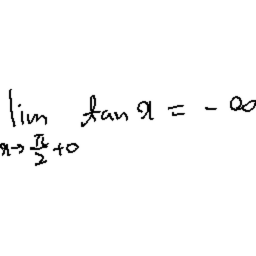 lim x→π/2+0 tan x = -∞